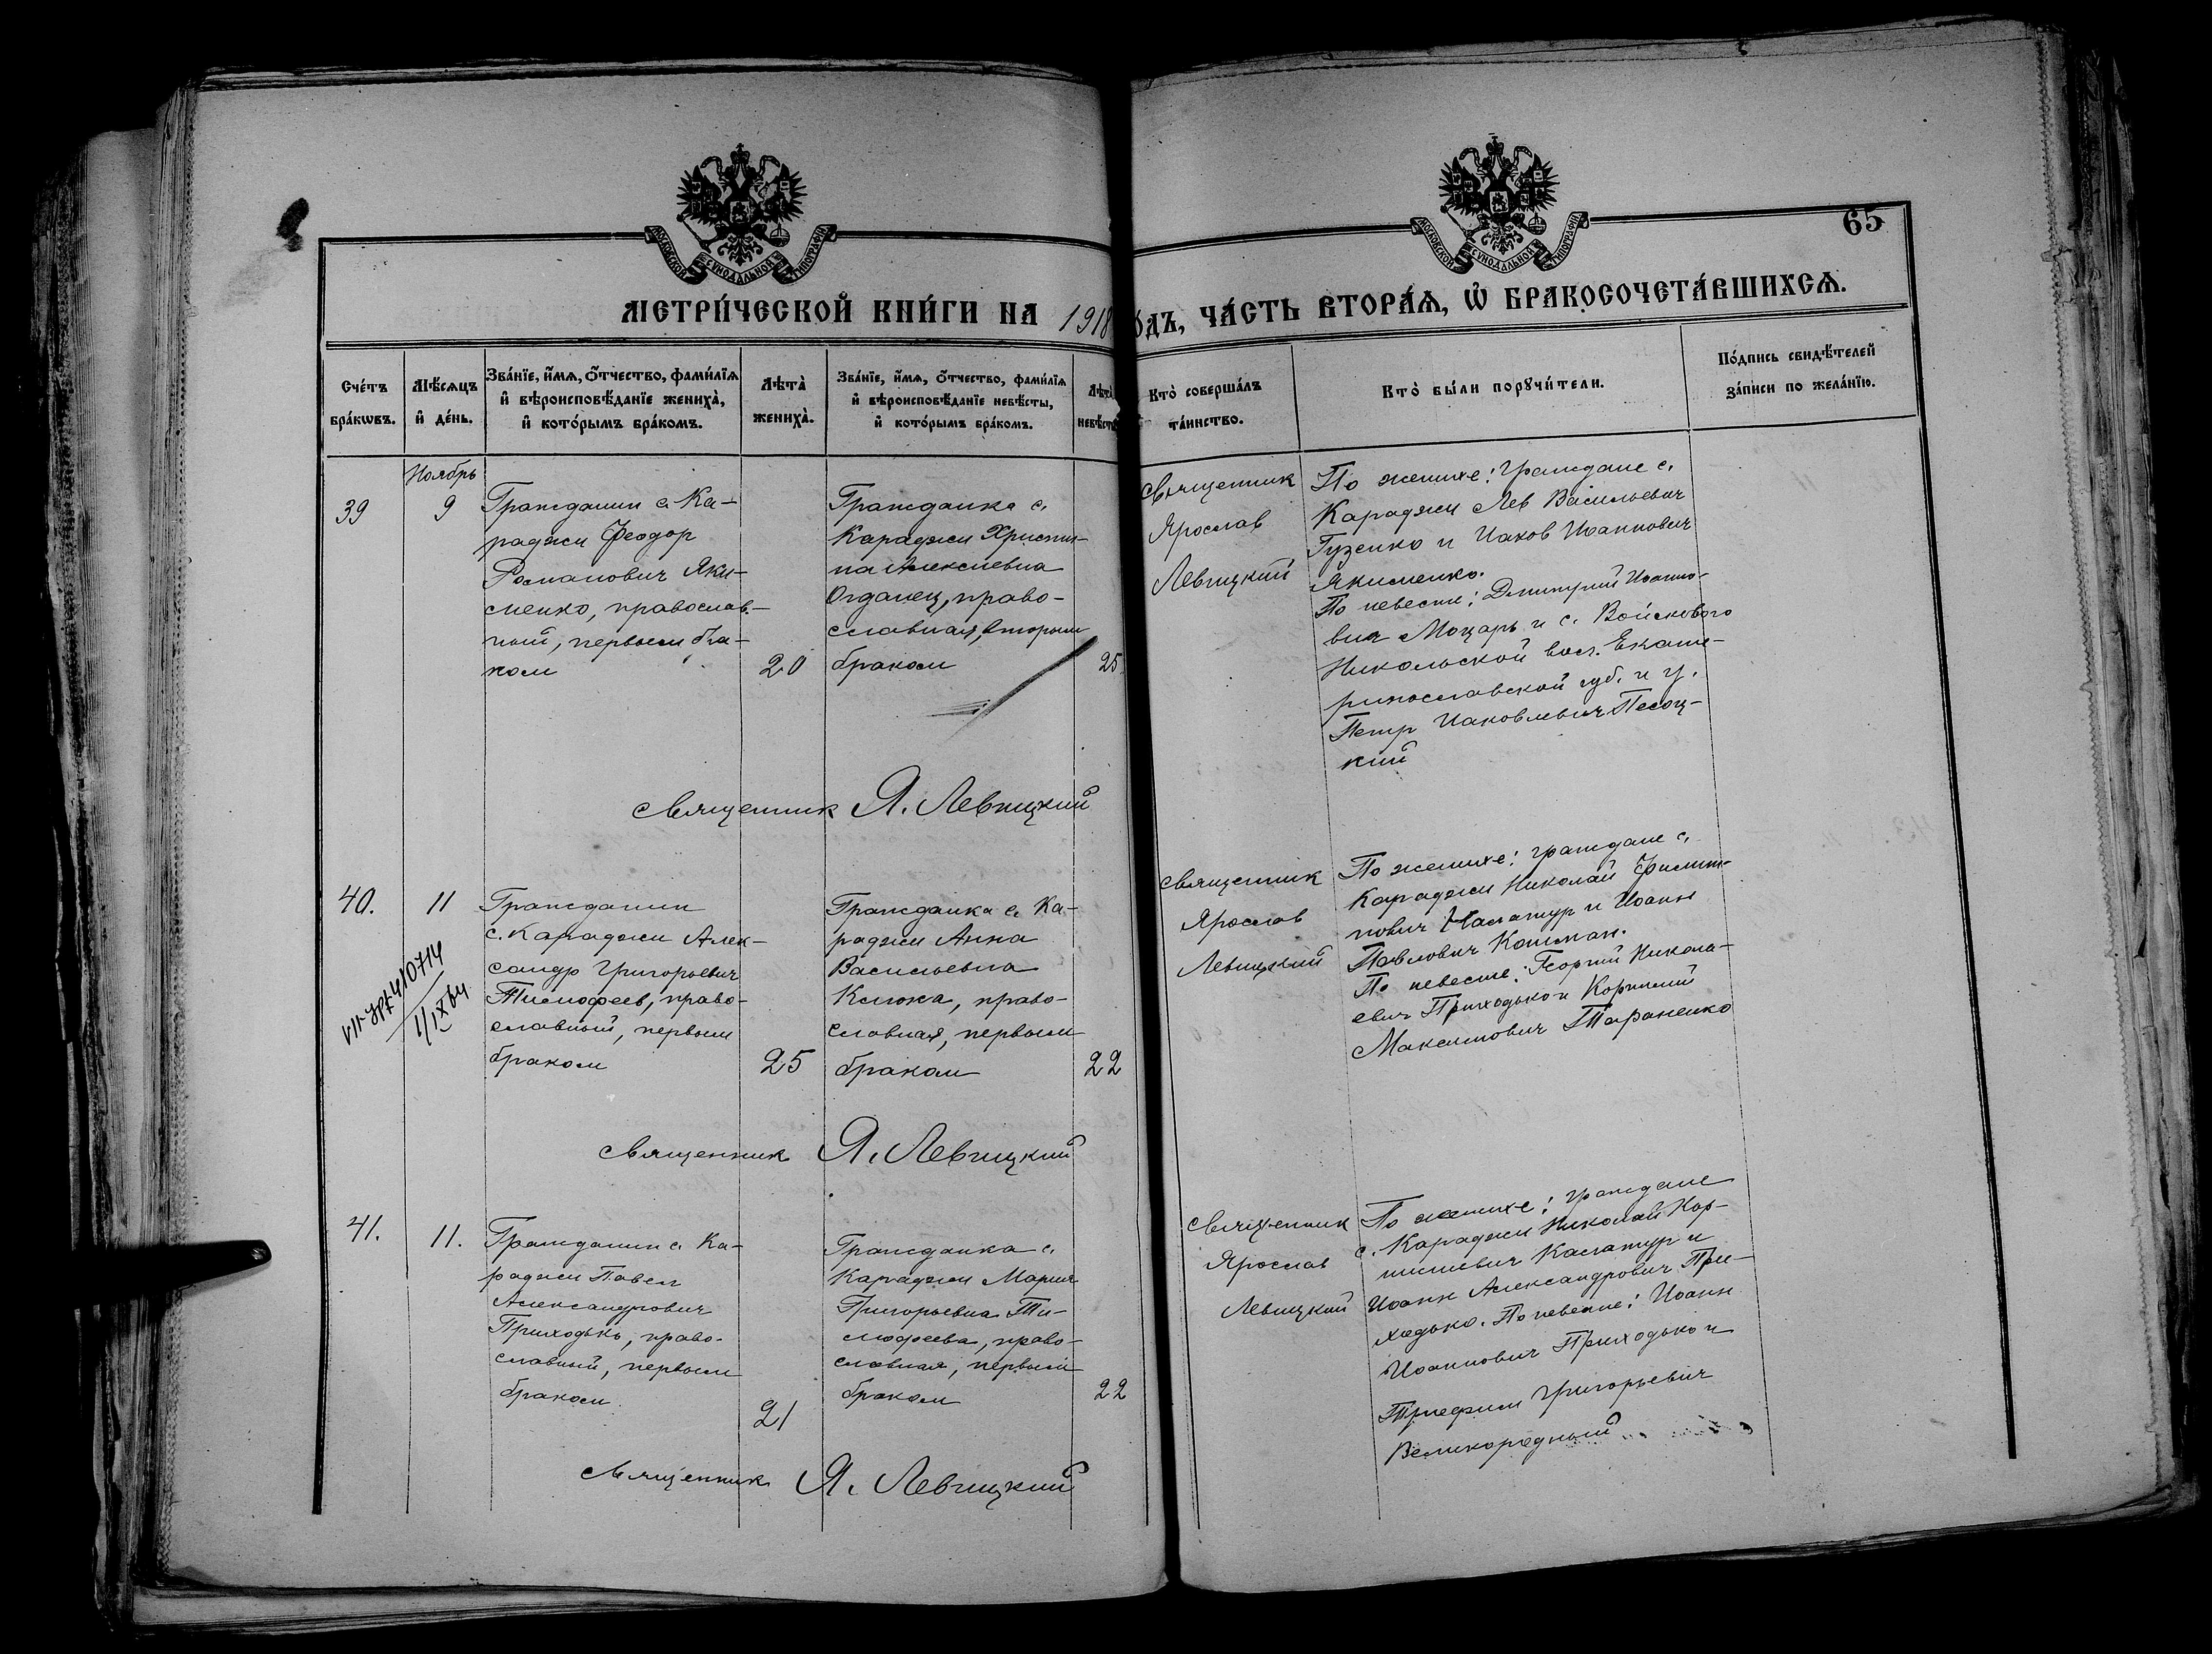 МОСКОВСКОЙ СѴНОДАЛЬНОЙ ТИПОГРАФІИ
МОСКОВСКОЙ СѴНОДАЛЬНОЙ ТИПОГРАФІИ
65
МЕТРИ́ЧЕСКОЙ КНИ́ГИ НА 1918
ГО́ДЪ, ЧА́СТЬ ВТОРА́Я, Ѡ҆ БРАКОСОЧЕТА́ВШИХСЯ.
Сче́тъ бра́кѡвъ.
Мѣ́сяцъ и҆ де́нь.
Зва́нїе, и҆́мя, ѻ҆́тчество, фами́лїя
и҆ вѣроисповѣ́данїе жениха̀,
и҆ кото́рымъ бра́комъ.
Лѣта̀ жениха̀.
Зва́нїе, и҆́мя, ѻ҆́тчество, фами́лїя
и҆ вѣроисповѣ́данїе невѣ́сты,
и҆ кото́рымъ бра́комъ.
Лѣта̀ невѣ́сты
Кто̀ соверша́лъ та́инство.
Кто̀ бы́ли порꙋчи́тели.
По́дпись свидѣ́телей
за́писи по жела́нїю.
Ноябрь
39
9
Гражданин с. Ка-
раджи Феодор
Романович Яки-
менко, православ-
ный, первым бра-
ком
20
Гражданка с.
Караджи Христи-
на Алексиевна
православная, вторым
браком
25
Священник
Ярослав
Левицкий
По женихе: граждане с.
Караджи Лев Васильевич
Гузенко и Иаков Иоаннович
Якименко.
По невесте: Димитрий Иоанно-
вич Моцарь и с. Войскового
Никольской вол. Екате-
ринославской губ. и у.
Петр Иаковлевич Песоц-
кий
Священник Я. Левицкий
40.
11
Гражданин
с. Караджи Алек-
сандр Григорьевич
Тимофеев, право-
славный, первым
браком
25
Гражданка с. Ка-
раджи Анна
Васильевна
Клюка, право-
славная, первым
браком
22
Священник
Ярослав
Левицкий
По женихе: граждане с.
Караджи Николай Филип-
пович и Иоанн
Павлович Кошман.
По невесте: Георгий Никола-
евич Приходько и Корнилий
Максимович Тараненко
410714
1/IX 64
Священник Я. Левицкий
41.
11.
Гражданин с. Ка-
раджи Павел
Александрович
Приходько, право-
славный, первым
браком
21
Гражданка с.
Караджи Мария
Григорьевна Ти-
мофеева, право-
славная, первым
браком
22
Священник
Ярослав
Левицкий
По женихе: граждане
с. Караджи Николай Кор-
нилиевич Каламур и
Иоанн Александрович При-
ходько. По невесте: Иоанн
Иоаннович Приходько и
Трифон Григорьевич
Великородный
Священник Я. Левицкий